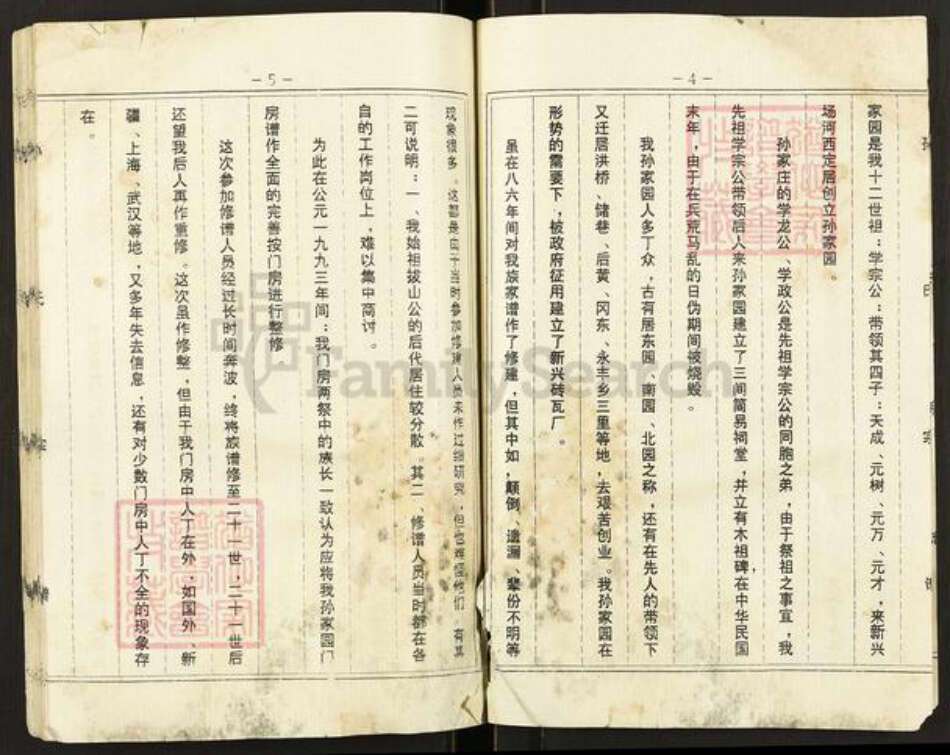 -4-
家园是我十二世祖：学宗公：带领其四子：天成、元树、元万、元才，来新兴
场河西定居创立孙家园。
孙家庄的学龙公、学政公是先祖学宗公的同胞之弟，由于祭祖之事宜，我
先祖学宗公带领后人来孙家园建立了三间简易祠堂，并立有木祖碑，在中华民国
末年，由于在兵荒马乱的日伪期间被烧毁。
我孙家园人多丁众，古有居东园、南园、北园之称，还有在先人的带领下
又迁居洪桥、储巷、后黄、冈东、永丰乡三里等地，去艰苦创业。我孙家园在
形势的需要下，被政府征用建立了新兴砖瓦厂。
虽在八六年间对我族家谱作了修建，但其中如，颠倒、遗漏、辈份不明等
-5-
现象很多。这都是由于当时参加修建人员未作过细研究，但也难怪他们，有其
二可说明：一、我始祖拔山公的后代居住较分散。其二、修谱人员当时都在各
自的工作岗位上，难以集中商讨。
为此在公元一九九三年间：我门房两祭中的族长一致认为应将我孙家园门
房谱作全面的完善按门房进行整修
这次参加修谱人员经过长时间奔波，终将族谱修至二十一世，二十一世后
还望我后人再作重修。这次虽作修整，但由于我门房中人丁在外，如国外、新
疆、上海、武汉等地，又多年失去信息，还有对少数门房中人丁不全的现象存
在。
FamilySearch